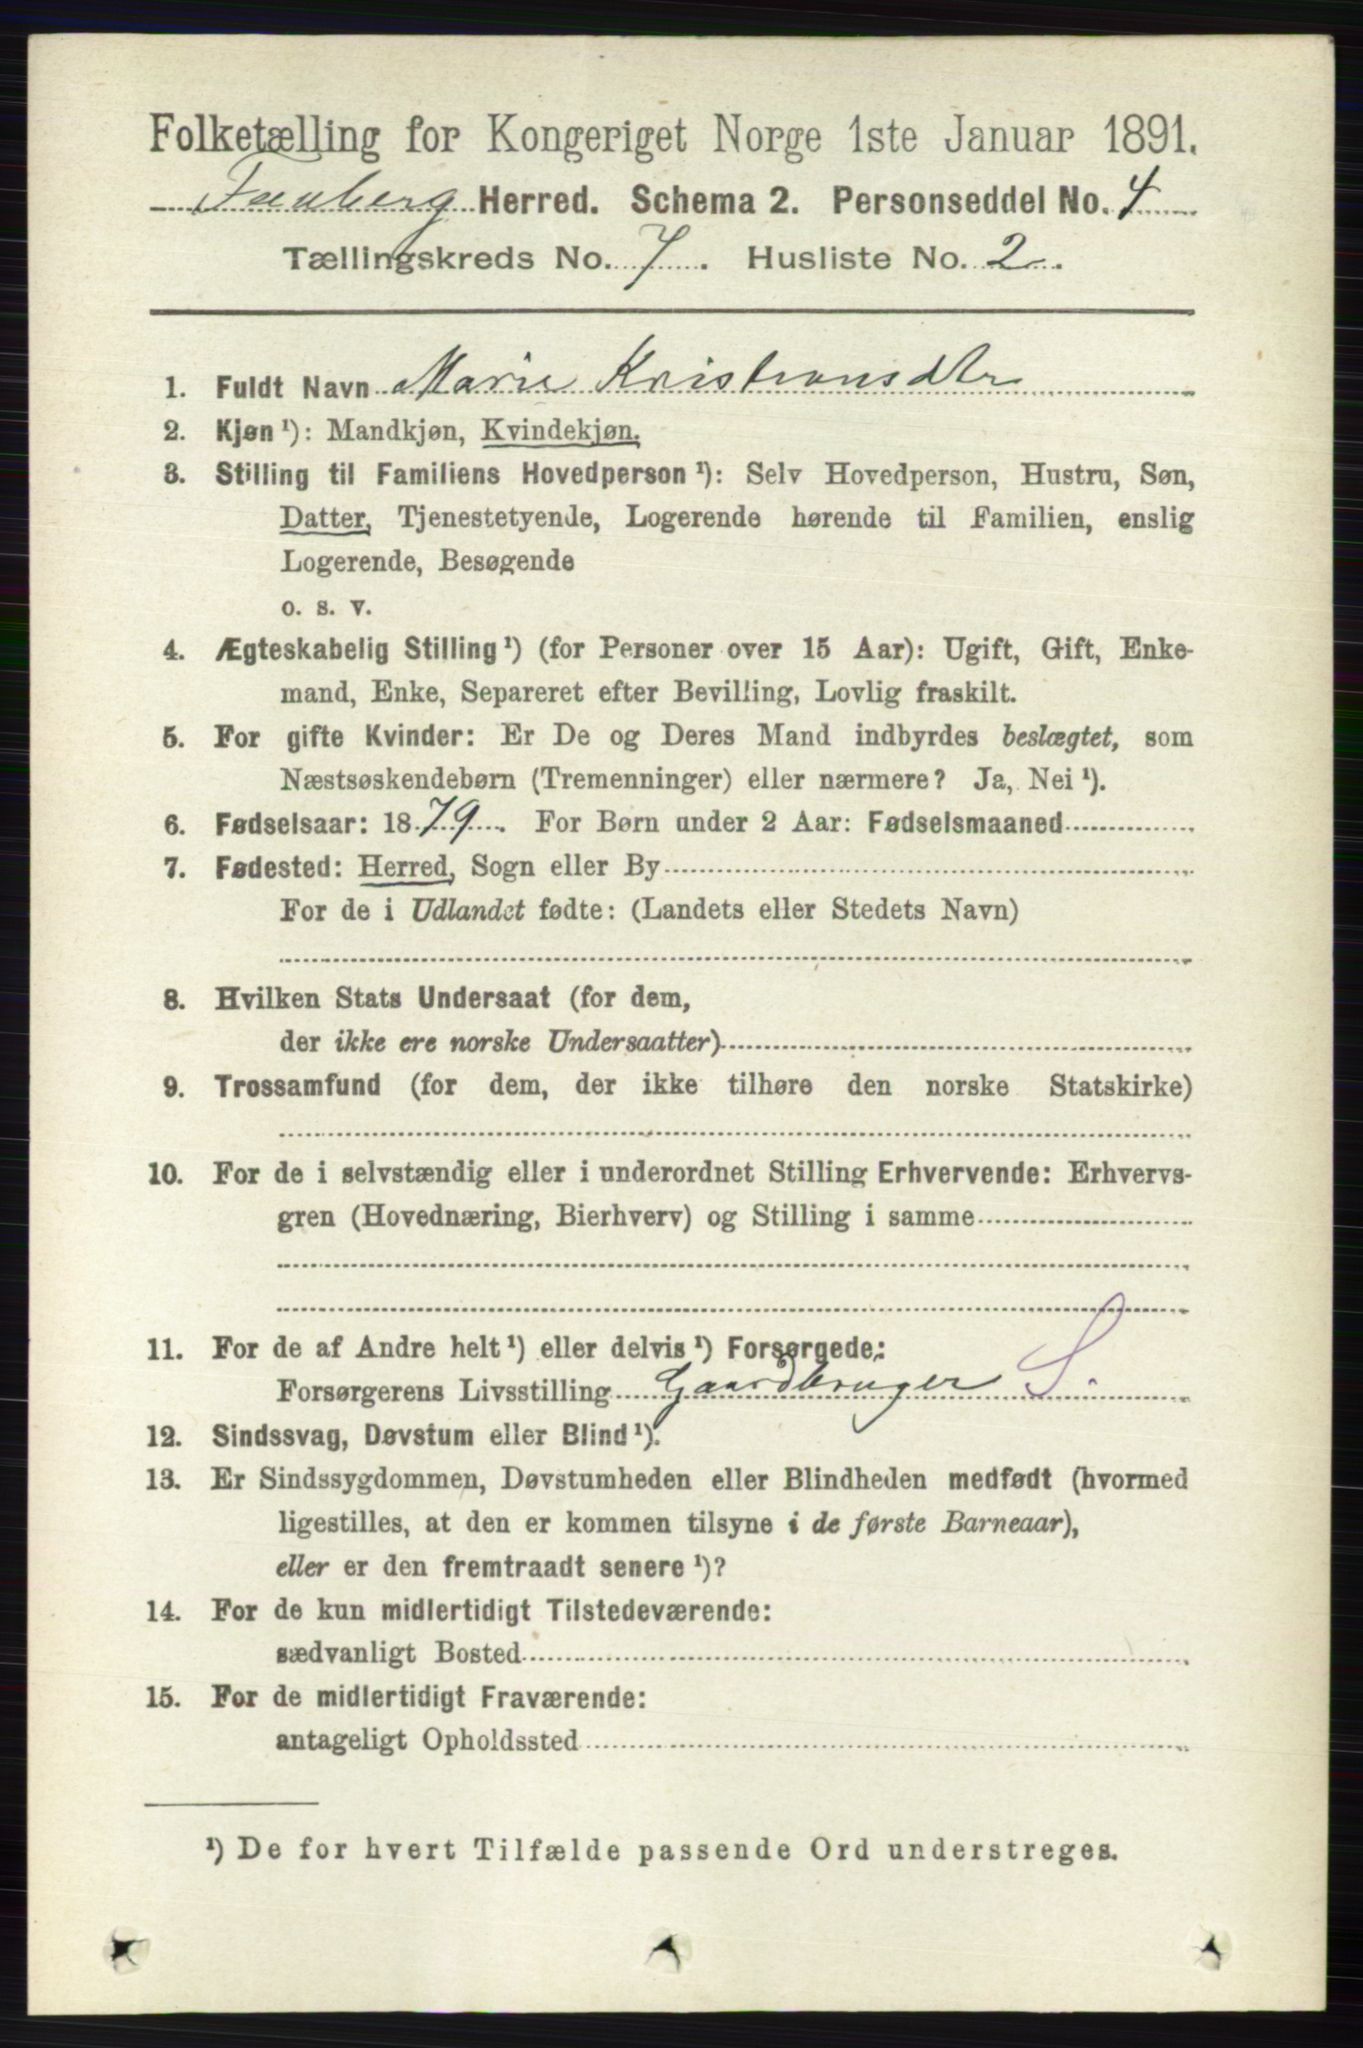 Folketælling for Kongeriget Norge 1ste Januar 1891.
Faaberg Herred. Schema 2. Personseddel No. 4
Tællingskreds No. 7. Husliste No. 2.
1. Fuldt Navn Marie Kristiansdtr
2. Kjøn ¹): Mandkjøn, Kvindekjøn.
3. Stilling til Familiens Hovedperson ¹): Selv Hovedperson, Hustru, Søn,
Datter, Tjenestetyende, Logerende hørende til Familien, enslig
Logerende, Besøgende
o. s. v.
4. Ægteskabelig Stilling ¹) (for Personer over 15 Aar): Ugift, Gift, Enke-
mand, Enke, Separeret efter Bevilling, Lovlig fraskilt.
5. For gifte Kvinder: Er De og Deres Mand indbyrdes beslægtet, som
Næstsøskendebørn (Tremenninger) eller nærmere? Ja, Nei ¹).
6. Fødselsaar: 1879. For Børn under 2 Aar: Fødselsmaaned
7. Fødested: Herred, Sogn eller By
For de i Udlandet fødte: (Landets eller Stedets Navn)
8. Hvilken Stats Undersaat (for dem,
der ikke ere norske Undersaatter)
9. Trossamfund (for dem, der ikke tilhøre den norske Statskirke)
10. For de i selvstændig eller i underordnet Stilling Erhvervende: Erhvervs-
gren (Hovednæring, Bierhverv) og Stilling i samme
11. For de af Andre helt ¹) eller delvis ¹) Forsørgede:
Forsørgerens Livsstilling Gaardbruger S.
12. Sindssvag, Døvstum eller Blind ¹).
13. Er Sindssygdommen, Døvstumheden eller Blindheden medfødt (hvormed
ligestilles, at den er kommen tilsyne i de første Barneaar),
eller er den fremtraadt senere ¹)?
14. For de kun midlertidigt Tilstedeværende:
sædvanligt Bosted
15. For de midlertidigt Fraværende:
antageligt Opholdssted
¹) De for hvert Tilfælde passende Ord understreges.